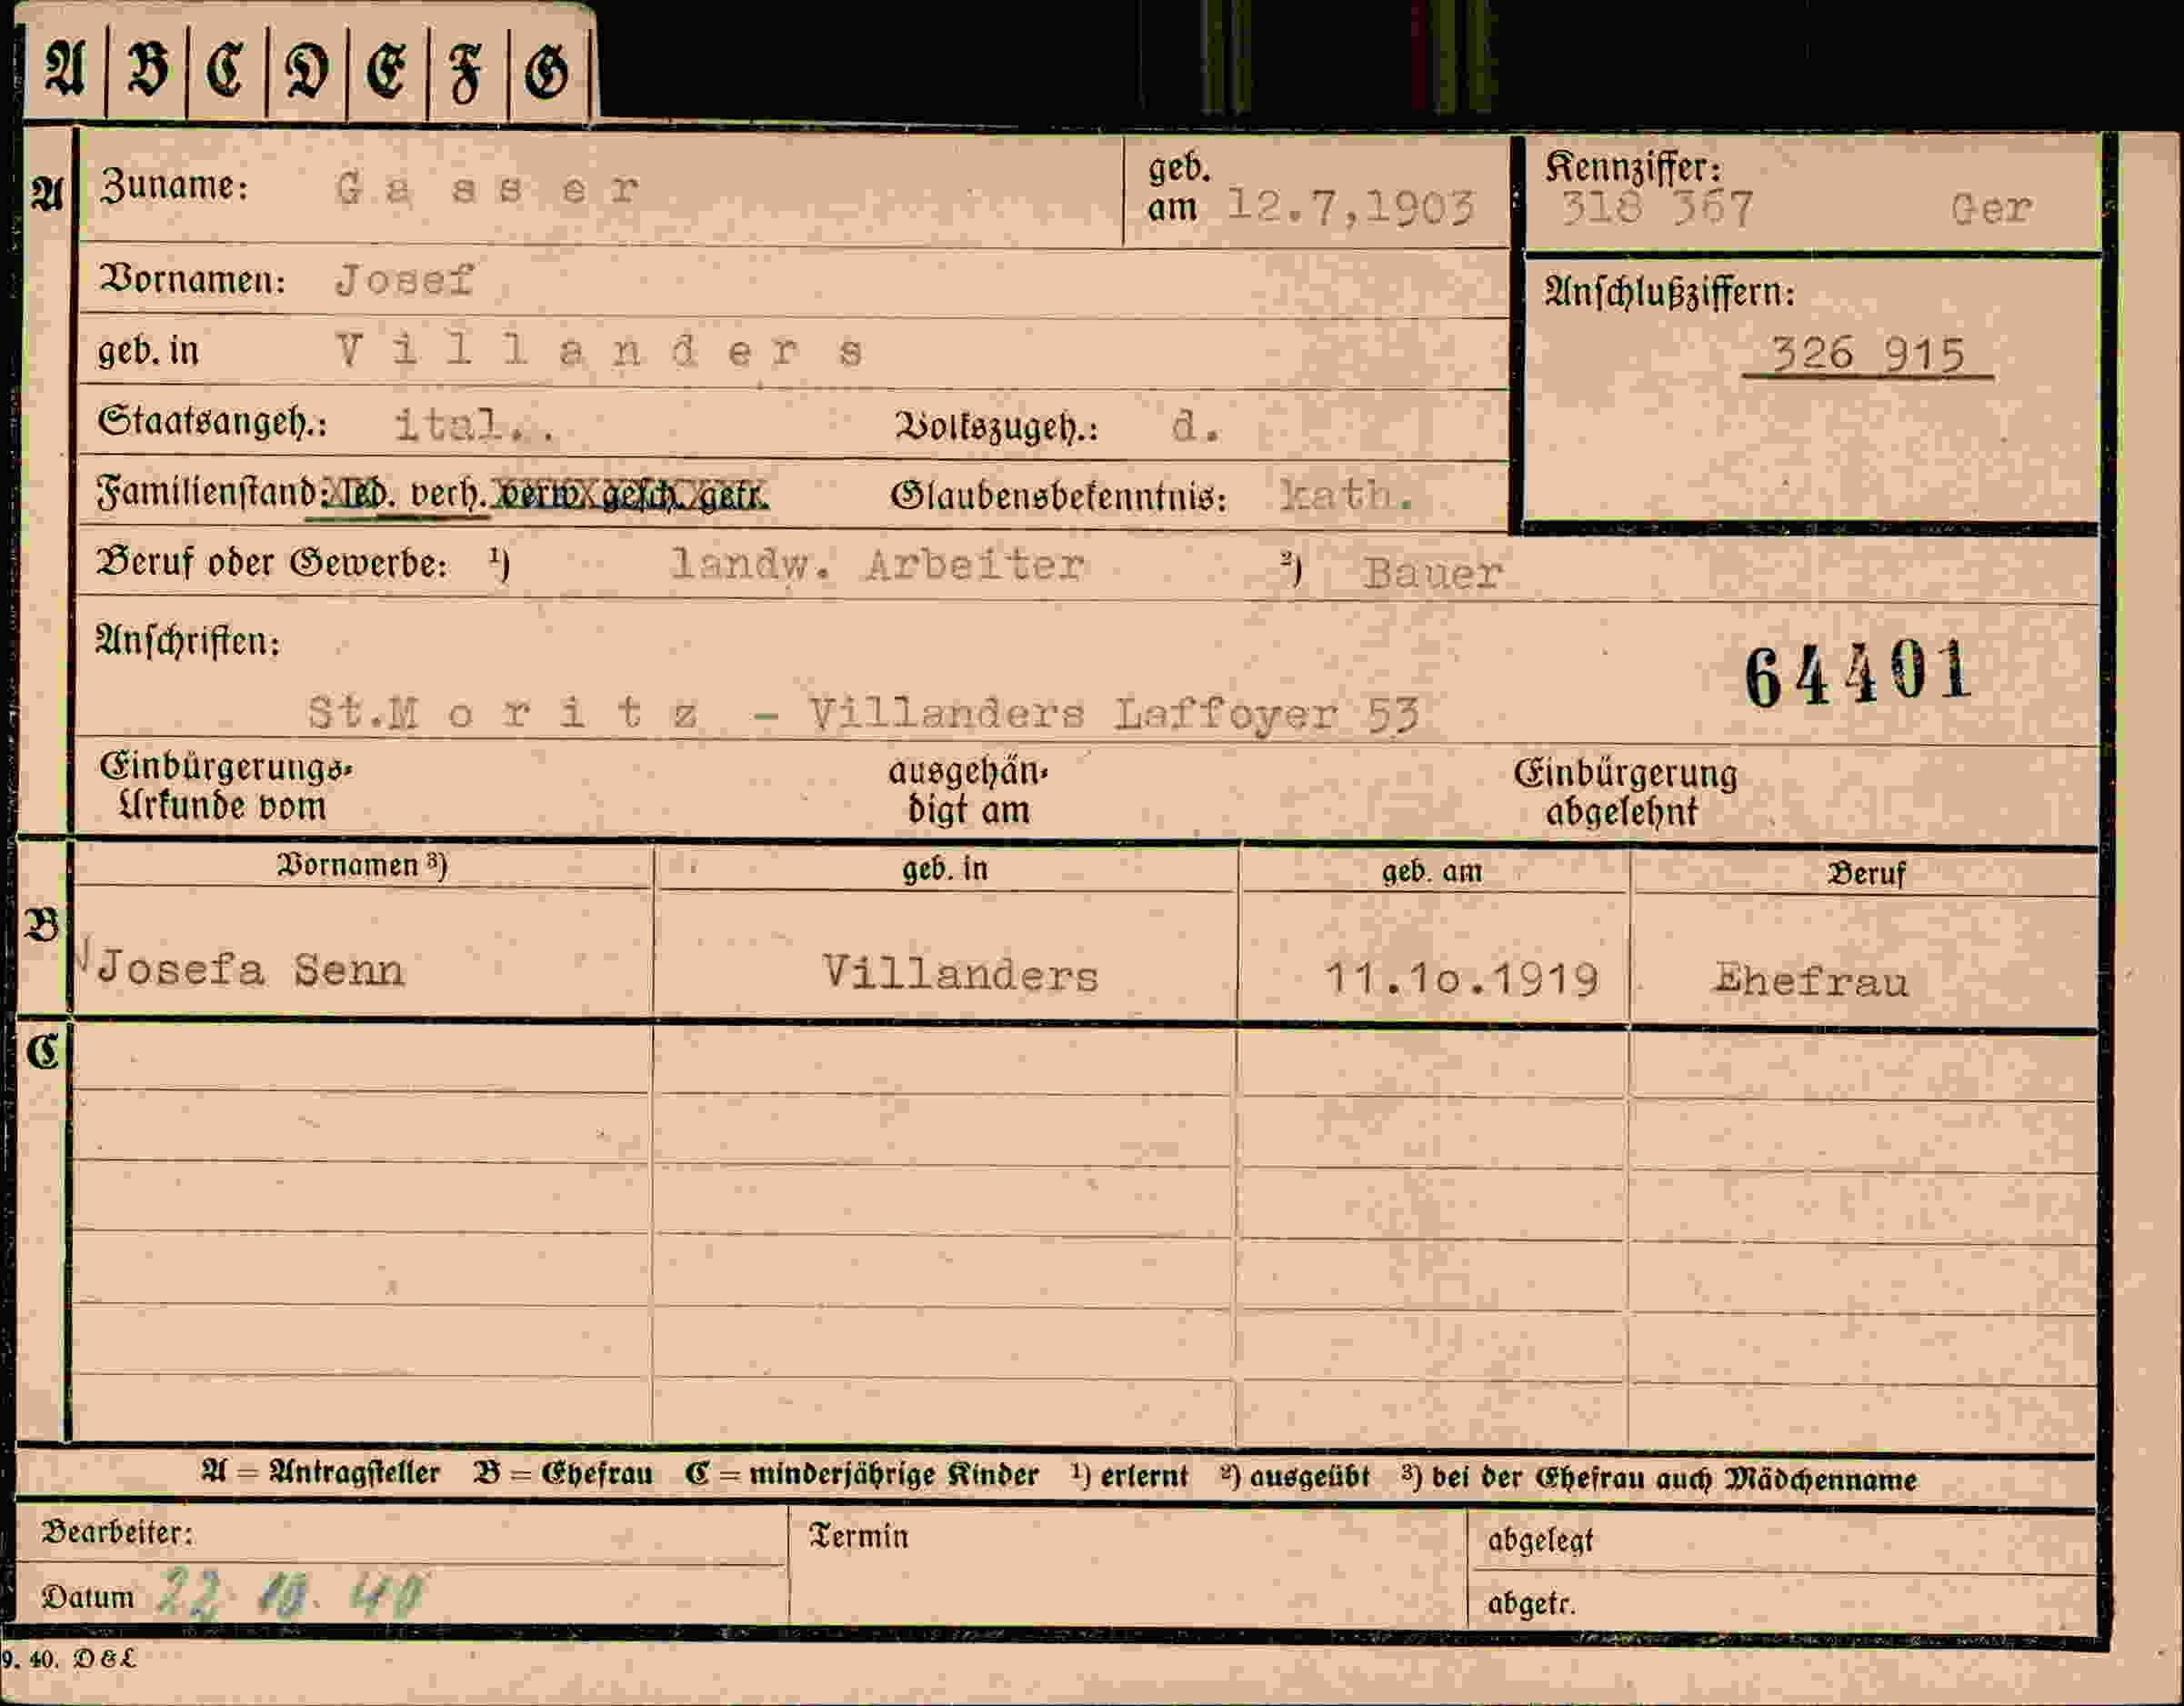 A B C D E F G
A Zuname: Gasser geb. am 12.7,1903 Kennziffer: 318 367 Ger
Vornamen: Josef Anschlußziffern:
geb. in Villanders 326 915
Staatsangeh.: ital.. Volkszugeh.: d.
Familienstand: led. verh. verw. gesch. getr. Glaubensbekenntnis: kath.
Beruf oder Gewerbe: ¹) landw. Arbeiter ²) Bauer
Anschriften: 64401
St.Moritz - Villanders Laffoyer 53
Einbürgerungs- ausgehän- Einbürgerung
Urkunde vom digt am abgelehnt
Vornamen ³) geb. in geb. am Beruf
B Josefa Senn Villanders 11.1o.1919 Ehefrau
C
A = Antragsteller B = Ehefrau C = minderjährige Kinder ¹) erlernt ²) ausgeübt ³) bei der Ehefrau auch Mädchenname
Bearbeiter: Termin abgelegt
Datum 22. 10. 40 abgetr.
9. 40. D&L